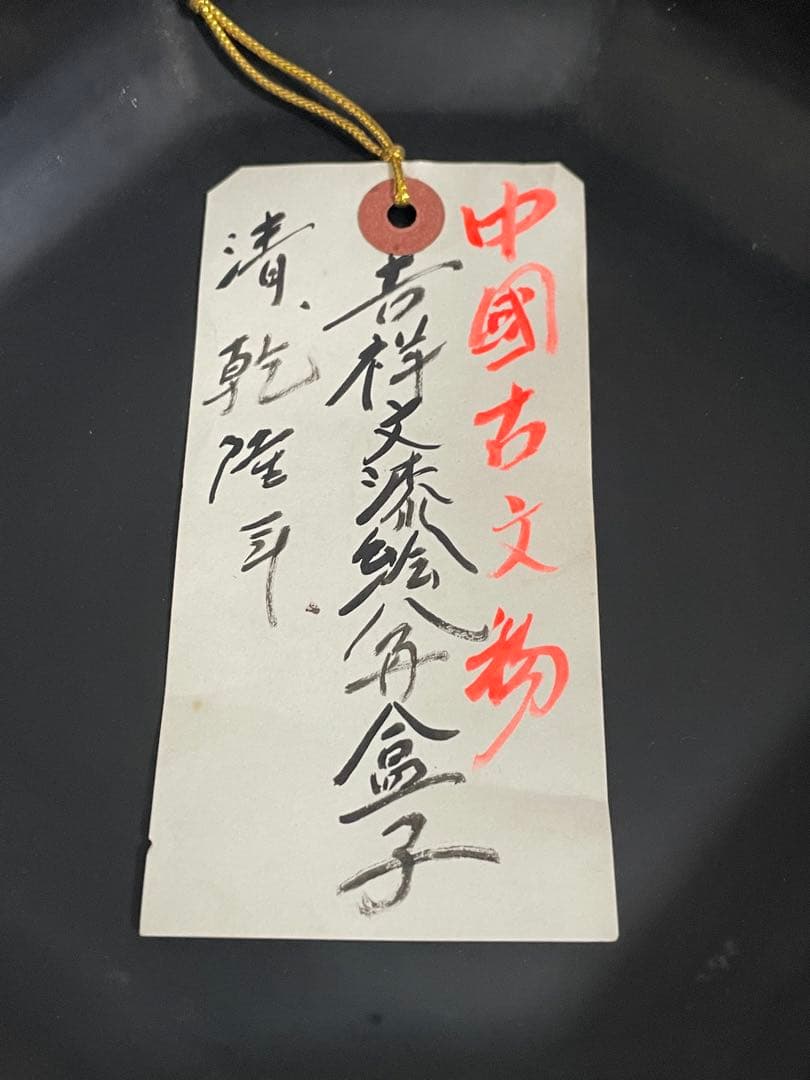 中國古文物
吉祥文漆絵八角盒子
清、乾隆年.